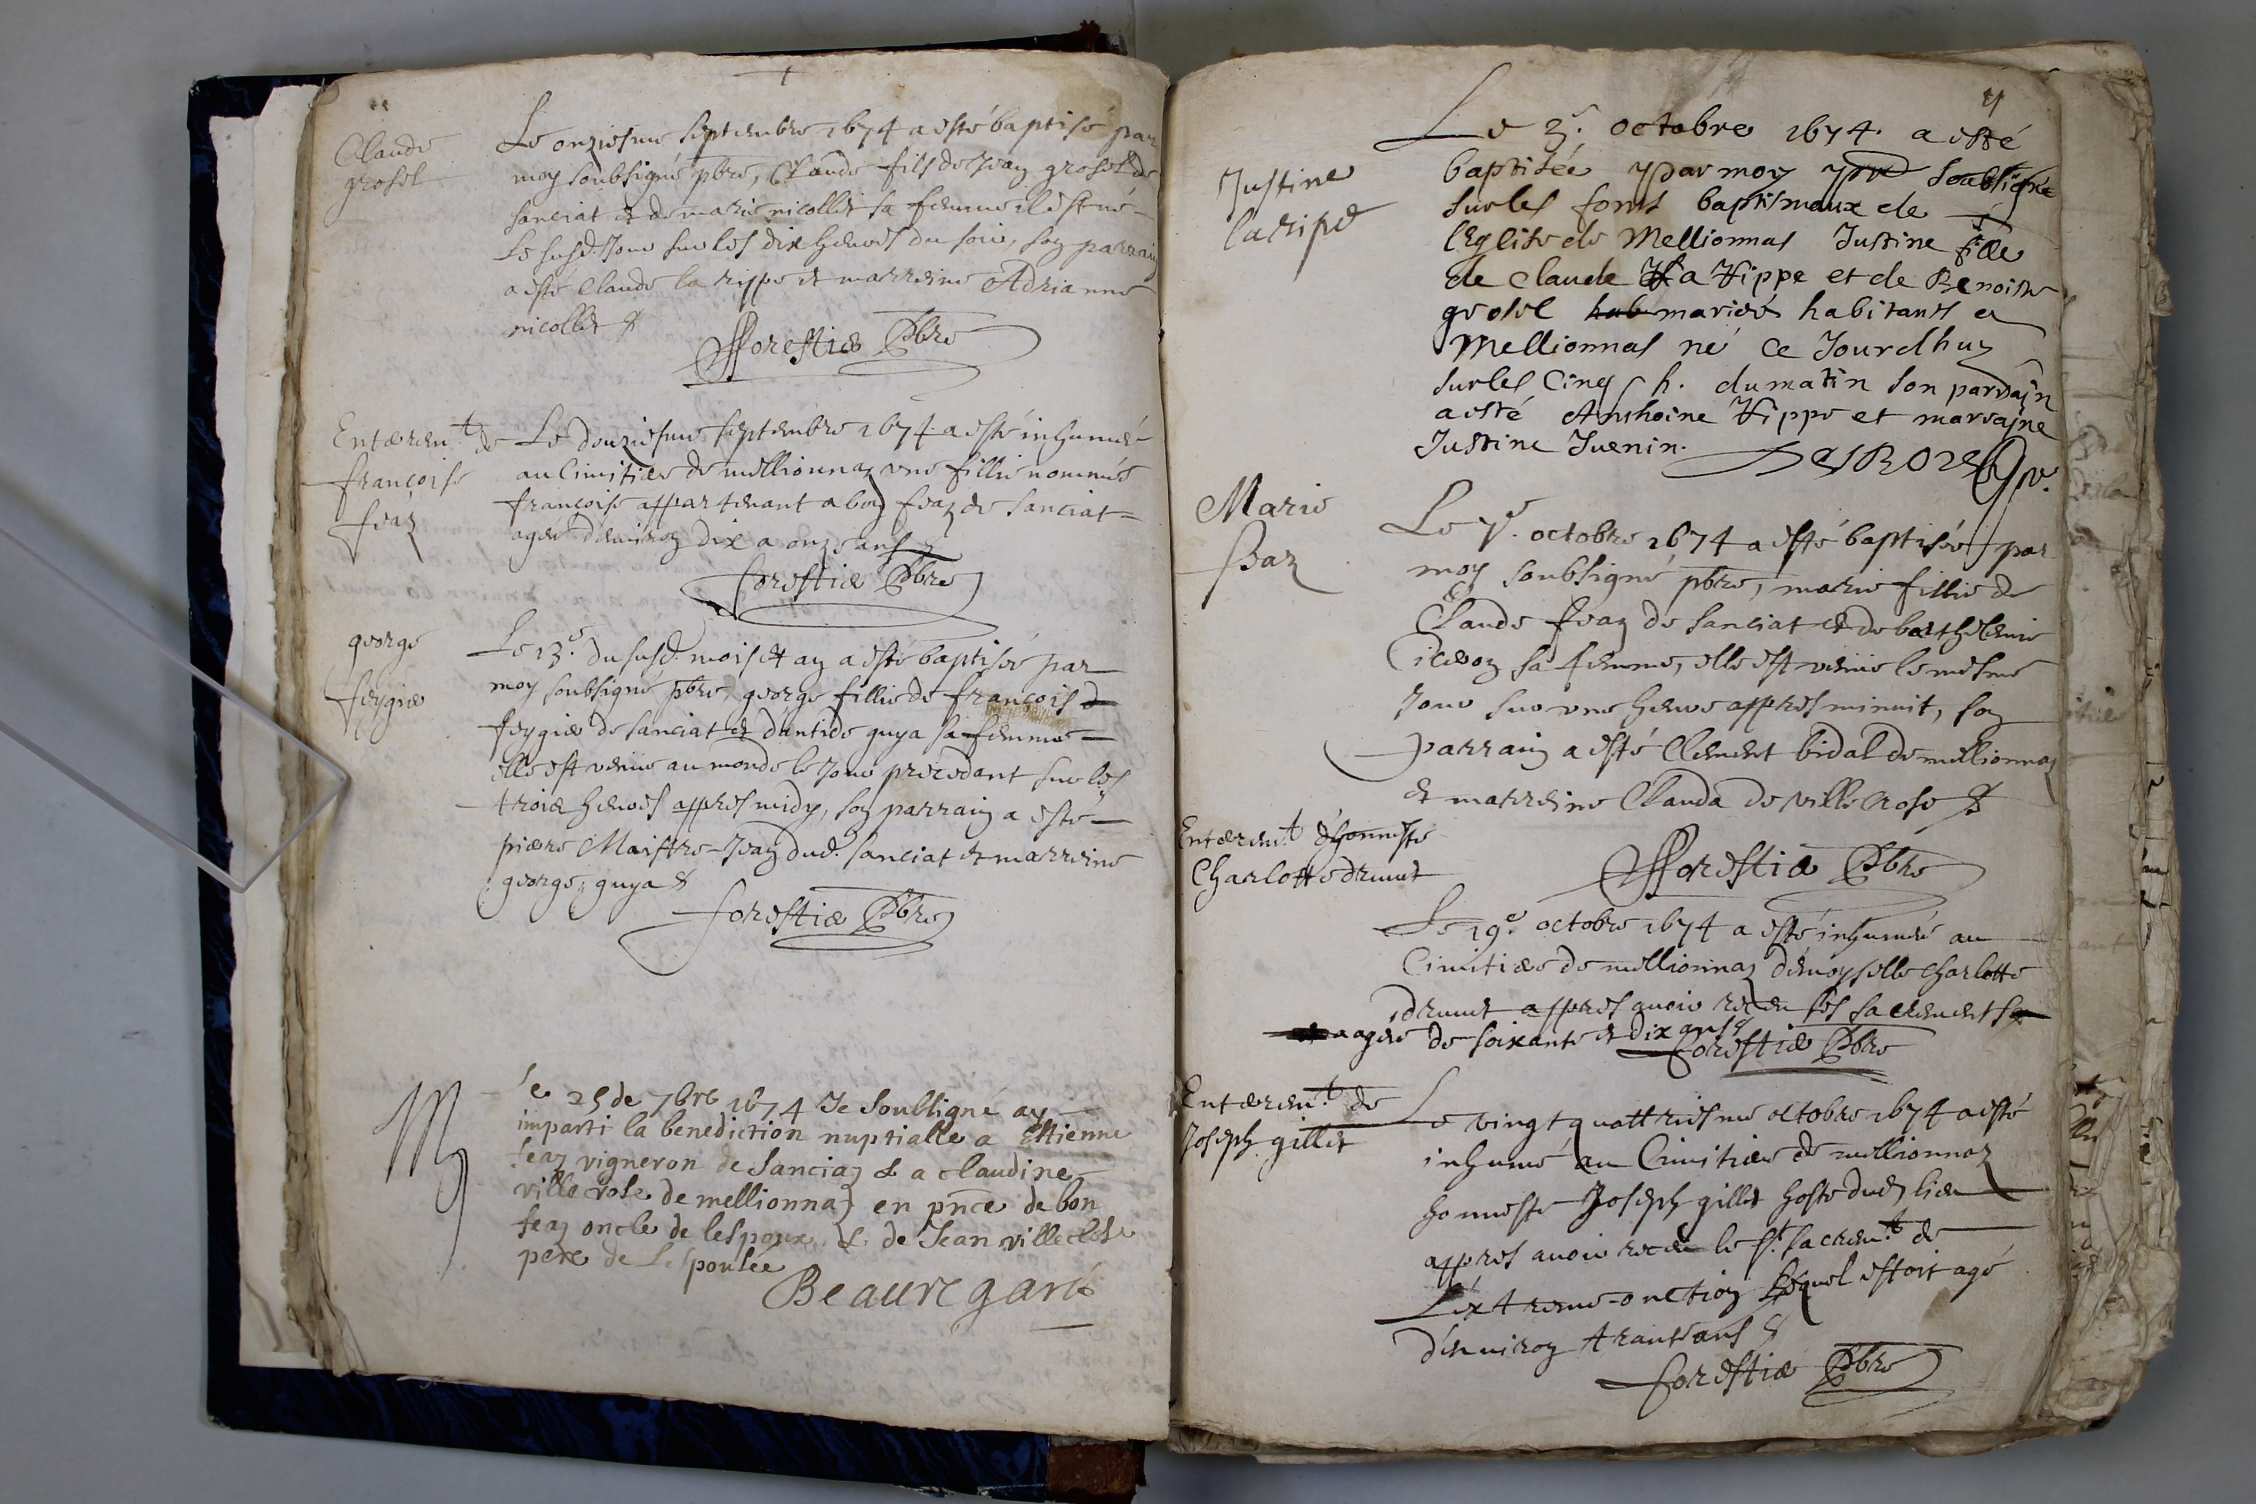 Claude
grosel
Le onziesme septembre 1674 a esté baptisé par
moy soubsigné pbre, Claude fils de Jean grosel de
sanciat et de marie nicollet sa femme il est né
le susd. Jour sur les dix heures du soir, son parrain
a esté Claude la rippe et marreine Adrianne
nicollet
fforestier Pbre
Enterem.t de
françoise
fear
Le douziesme septembre 1674 a esté inhumée
au Cimitiere de mellionnaz une fillie nommée
françoise appartenant a bon fear de sanciat
agée d'environ dix a onze ans
forestier Pbre
george
feygier
Le 13.e du susd. mois et an a esté baptisée par
moy soubsigné pbre, george fillie de françois
feygier de sanciat et dantide guya sa femme
elle est venue au monde le Jour precedant sur les
trois heures appres midy, son parrain a esté
pierre Maistre-Jean dud. sanciat et marreine
george guya
forestier Pbre
Le 25 de 7bre 1674 Je soubsigné ay
imparti la benediction nuptialle a Estienne
fear vigneron de Sanciaz & a claudine
villecrose de mellionnaz en pnce de bon
fear oncle de lespoux & de Jean villecrose
pere de Lespousée
Beauregard
Justine
laripe
Le 3.e octobre 1674 a esté
baptisée par moy soubsigné
sur les fonts baptismaux de
lEglise de Mellionnas Justine fille
de Claude la Rippe et de Benoiste
grosel hab mariés habitants a
Mellionnas né Ce Jourdhuy
sur les Cinq h. du matin son parrain
a esté Anthoine Rippe et marraine
Justine Juenin.
Marie
fear
Le 7.e octobre 1674 a esté baptisée par
moy soubsigné pbre, marie fillie de
Claude fear de sanciat et de barthelemie
sa femme, elle est venue le mesme
Jour sur une heure appres minuit, son
parrain a esté Clement bidal de mellionnaz
et marreine Clauda de villecrose
fforestier Pbre
Enterem.t d'honneste
Charlotte drunet
Le 19.e octobre 1674 a esté inhumée au
Cimitiere de mellionnaz demoyselle Charlotte
drunet appres avoir receu ses sacrements
aagée de soixante et dix ans
forestier Pbre
Enterem.t de
Joseph gillet
Le vingt quattriesme octobre 1674 a esté
inhumé au Cimitiere de mellionnaz
honneste Joseph gillet hoste dud. lieu
appres avoir receu le s.t sacrem.t de
L'extreme-onction lequel estoit agé
d'environ trante ans
forestier Pbre